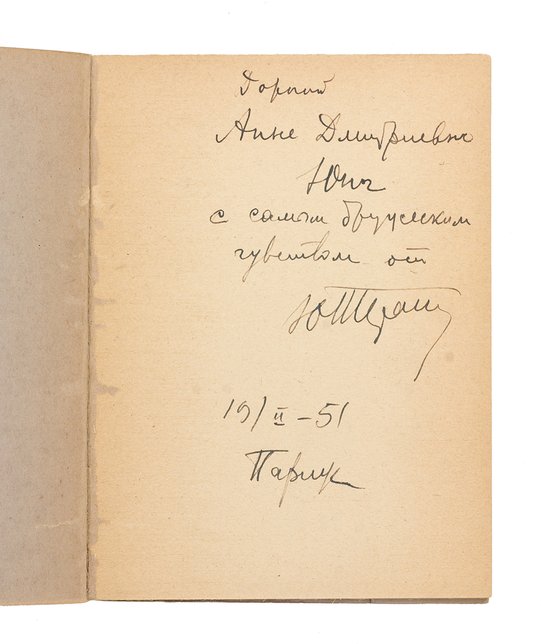 Дорогой
Анне Дмитриевне
с самым дружеским
чувством от
19/II–51
Париж